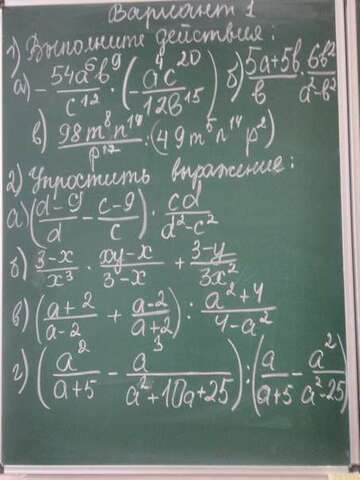 Вариант 1
1) Выполните действия:
а) -54a⁶b⁹/c¹² · (-a⁴c²⁰/12b¹⁵) б) (5a+5b)/b · 6b²/(a²-b²)
в) 98m⁸n¹⁸/p¹² : (49m⁵n¹⁴p²)
2) Упростить выражение:
а) ((d-9)/d - (c-9)/c) · cd/(d²-c²)
б) (3-x)/x³ · (xy-x)/(3-x) + (3-y)/3x²
в) ((a+2)/(a-2) + (a-2)/(a+2)) : (a²+4)/(4-a²)
г) (a²/(a+5) - a³/(a²+10a+25)) : (a/(a+5) - a²/(a²-25))